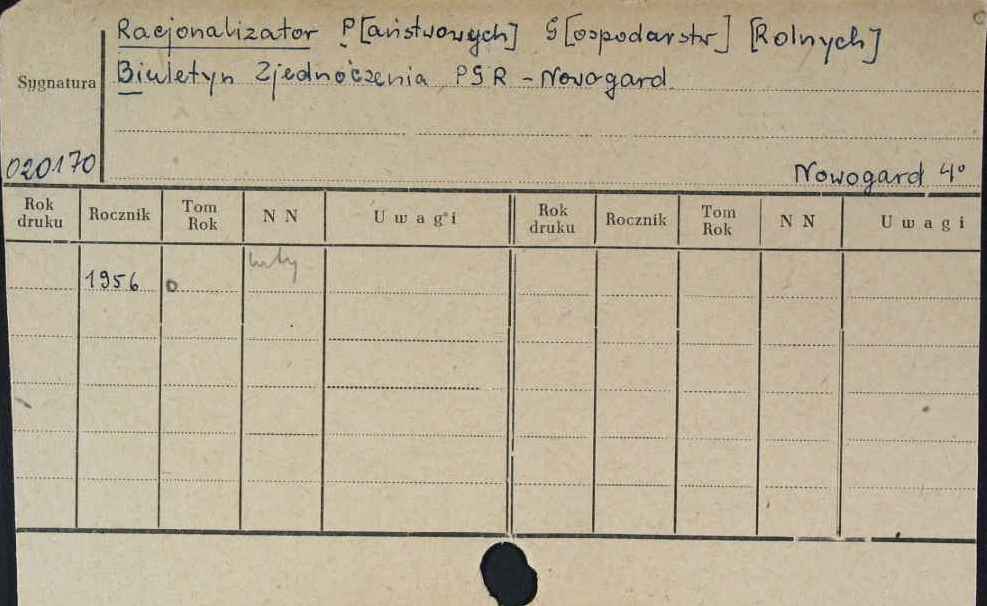 Racjonalizator P[aństwowych] G[ospodarstw] [Rolnych]
Sygnatura Biuletyn Zjednoczenia PGR - Nowogard.
020170 Nowogard 4°
Rok druku Rocznik Tom Rok N N Uwagi Rok druku Rocznik Tom Rok N N Uwagi
luty
1956 0